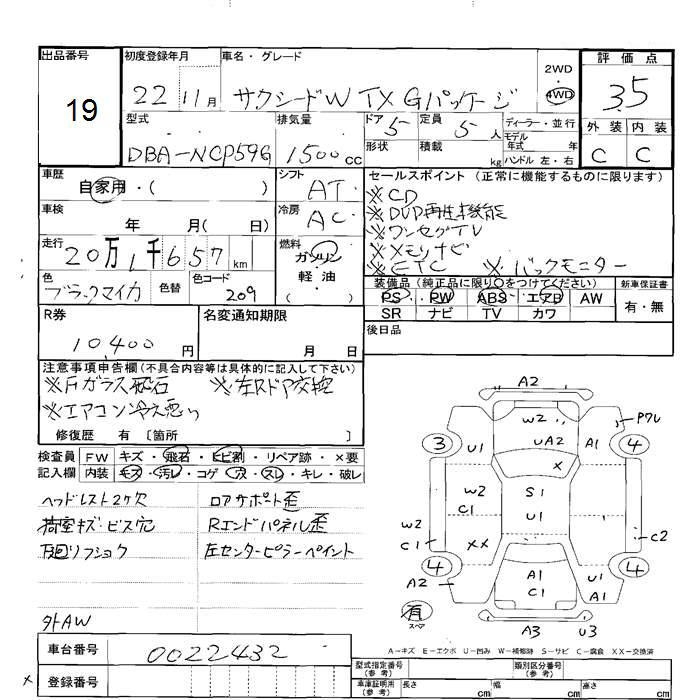 出品番号
19
初度登録年月
22 11月
車名・グレード
サクシードW TX Gパッケージ
2WD
4WD
評価点
3.5
外装 内装
C C
型式
DBA-NCP59G
排気量
1500cc
ドア 5
定員 5人
形状
積載 kg
ディーラー・並行
モデル年式 年
ハンドル 左・右
車歴
自家用・( )
車検
年 月( 日)
走行
20万1千657km
色
ブラックマイカ
色替
色コード
209
シフト
AT
冷房
AC
燃料
ガソリン
軽・油
( )
セールスポイント (正常に機能するものに限ります)
※CD
※DVD再生機能
※ワンセグTV
※メモリナビ
※ETC ※バックモニター
装備品(純正品に限り○をつけてください)
PS PW ABS エアB AW
SR ナビ TV カワ
新車保証書
有・無
後日品
R券
10,400円
名変通知期限
月 日
注意事項申告欄(不具合内容等は具体的に記入して下さい)
※Fガラス飛石 ※左Rドア交換
※エアコン冷え悪い
修復歴 有〔箇所 〕
検査員記入欄
FW キズ・飛石・ヒビ割・リペア跡・×要
内装 キズ・汚レ・コゲ・穴・スレ・キレ・破レ
ヘッドレスト2ケ欠
荷室キズ・ビス穴
下廻リフショク
外AW
ロアサポート歪
Rエンドパネル歪
左センターピラーペイント
車台番号
0022432
登録番号
×
A2
W2
UA2
×
U1
A1
P7レ
3
4
W2
C1
S1
U1
W2
C1
XX
C2
4
4
A2
A1
C1
U1
A1
有
スペア
A3
U3
A-キズ E-エクボ U-凹み W-補修跡 S-サビ C-腐食 XX-交換済
型式指定番号(参考)
類別区分番号(参考)
車庫証明用(参考)
長さ cm
幅 cm
高さ cm